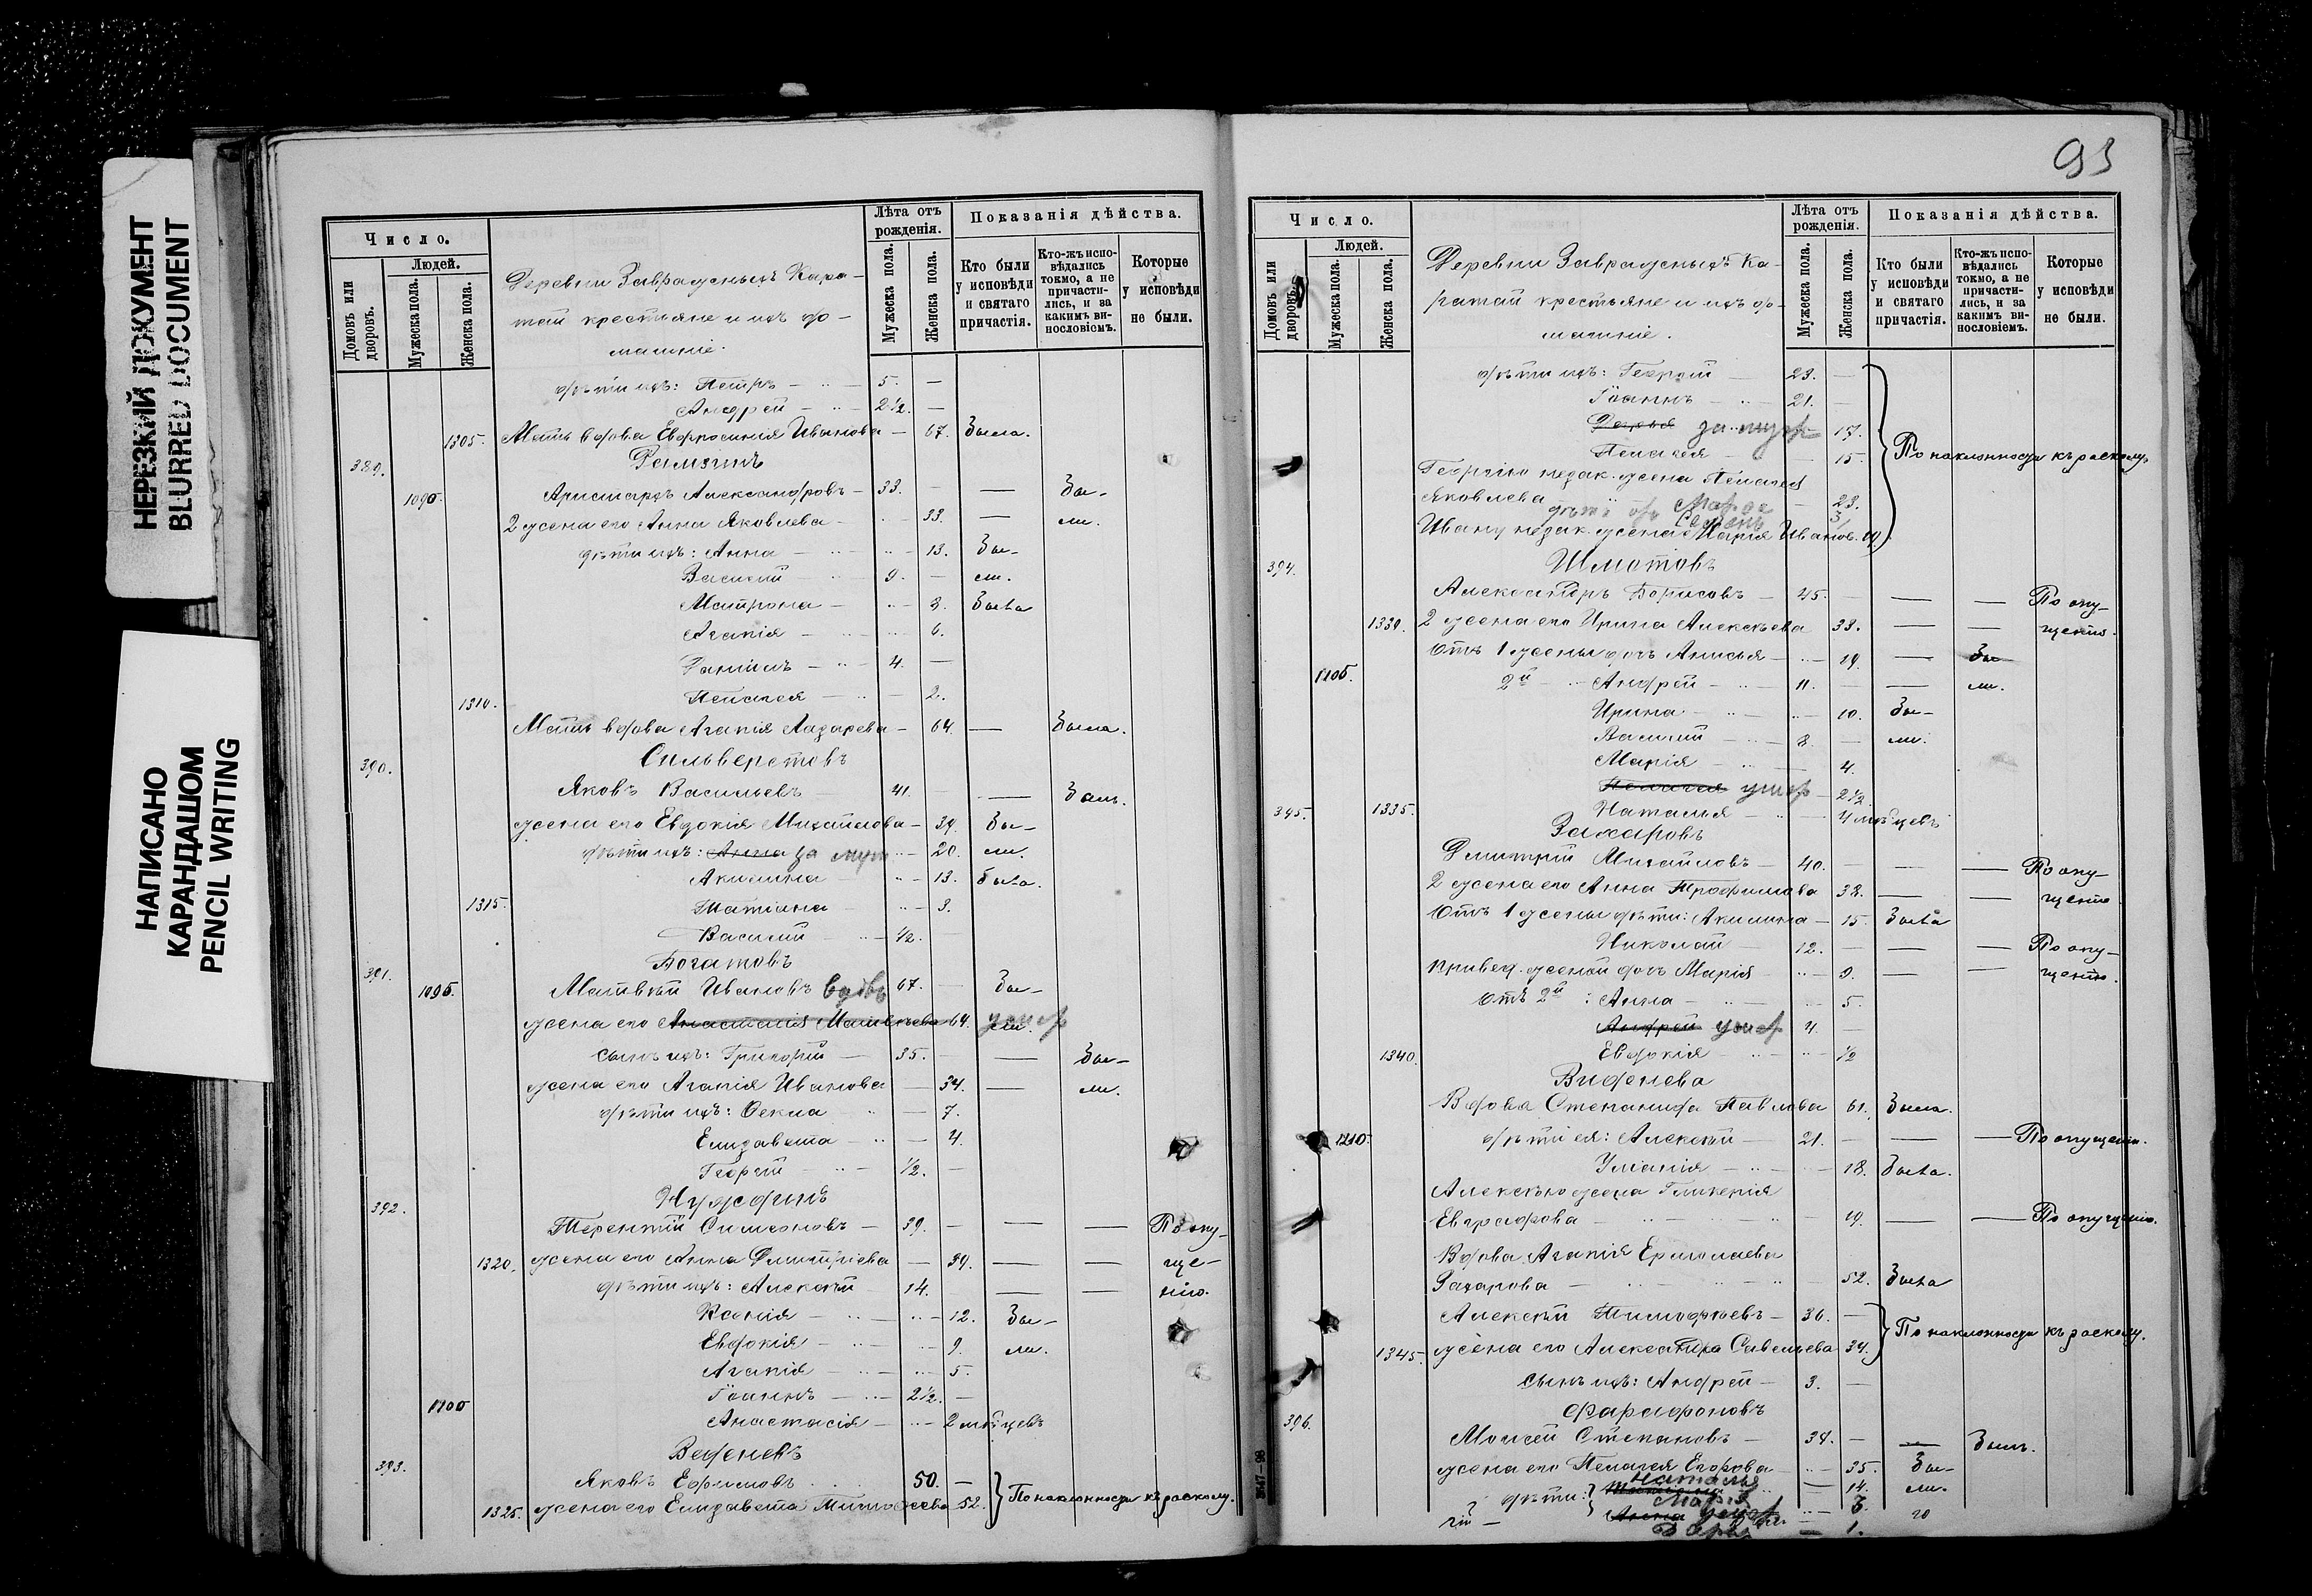 НЕРЕЗКИЙ ДОКУМЕНТ
BLURRED DOCUMENT
НАПИСАНО
КАРАНДАШОМ
PENCIL WRITING
Число.
Людей.
Домовъ или дворовъ.
Мужеска пола.
Женска пола.
Деревни Завражныхъ Кара-
тай крестьяне и ихъ до-
машніе.
Лѣта отъ рожденія.
Мужеска пола.
Женска пола.
Показанія дѣйства.
Кто были у исповѣди и святаго причастія.
Кто-жъ испо-вѣдались токмо, а не причасти-лись, и за какимъ ви-нословіемъ.
Которые у исповѣди не были.
дѣти ихъ: Петръ 5.
Андрей 2½.
1305. Мать вдова Евфросинія Иванова 67. Была.
389.
1090. Аристархъ Александровъ 33. Бы-
2 жена его Анна Яковлева 33. ли.
дѣти ихъ: Анна 13. Бы-
Василій 9. ли.
Матрона 8. Была
Агапія 6.
Даніилъ 4.
1310. Пелагея 2.
Мать вдова Агапія Лазарева 64. Была.
390. Сильверстовъ
Яковъ Васильевъ 41. Былъ.
жена его Евдокія Михайлова 39. Бы-
дѣти ихъ: Анна за муж 20. ли.
Акилина 13. была.
1315. Татіана 3.
Василій ½.
391. Богатовъ
1095. Матвѣй Ивановъ вдовъ 67. Бы-
жена его Анастасія Матвѣева 64. ли. умер
сынъ ихъ: Григорій 35. Бы-
жена его Агапія Иванова 34. ли.
дѣти ихъ: Ѳекла 7.
Елизавета 4.
Георгій ½.
392. Нуждинъ
Терентій Симеоновъ 39. По опу-
1320. жена его Анна Дмитріева 39. ще-
дѣти ихъ: Алексѣй 14. нію.
Ксенія 12. Бы-
Евдокія 9. ли.
Агапія 5.
1100 Іоаннъ 2½.
Анастасія 2 мѣсцевъ
393. Веденевъ
Яковъ Ефимовъ 50.
1325. жена его Елизавета Тимоѳеева 52. По наклонности къ расколу.
93
Число.
Людей.
Домовъ или дворовъ.
Мужеска пола.
Женска пола.
Деревни Завражныхъ Ка-
ратай крестьяне и ихъ до-
машніе.
Лѣта отъ рожденія.
Мужеска пола.
Женска пола.
Показанія дѣйства.
Кто были у исповѣди и святаго причастія.
Кто-жъ испо-вѣдались токмо, а не причасти-лись, и за какимъ ви-нословіемъ.
Которые у исповѣди не были.
дѣти ихъ: Георгій 23.
Іоаннъ 21.
Дарья за муж 17.
Пелагея 15. По наклонности къ расколу.
Георгію незак. жена Пелагея
Яковлева 23.
Ивану незак. жена Марія Иванов.
394. Шмотовъ
Александръ Борисовъ 45. По опу-
1330. 2 жена его Ирина Алексѣева 38. щенію.
Отъ 1 жены дочь Анисья 19. Бы
1105. 2й Андрей 11. ли.
Ирина 10. Бы-
Василій 8. ли.
Марія 4.
Пелагея умер 2½
1335. Наталья 4 мѣсцевъ
395. Захаровъ
Дмитрій Михайловъ 40. По опу-
2 жена его Анна Трофимова 38. щенію
Отъ 1 жены дѣти: Акилина 15. Была
Николай 12. По опу-
Привед. женой дочь Марія 9. щенію.
Отъ 2й: Анна 5.
Андрей умер 4.
1340. Евдокія ½
Виденева
Вдова Степанида Павлова 61. Была.
1110. дѣти ея: Алексѣй 21. По опущенію.
Уліанія 18. Была.
Алексѣю жена Гликерія
Евграфова 19. По опущенію.
Вдова Агапія Ермолаева
Захарова 52. Была
Алексѣй Тимофѣевъ 36.
1345. жена его Александра Савельева 34. По наклонности къ расколу.
сынъ ихъ: Андрей 3.
396. Фарафоновъ
Моисей Степановъ 34. Былъ.
жена его Пелагея Егорова 35. Бы-
дѣти: Наталья 14. ли.
Марія 3.
Анна умер
Дарья 1.